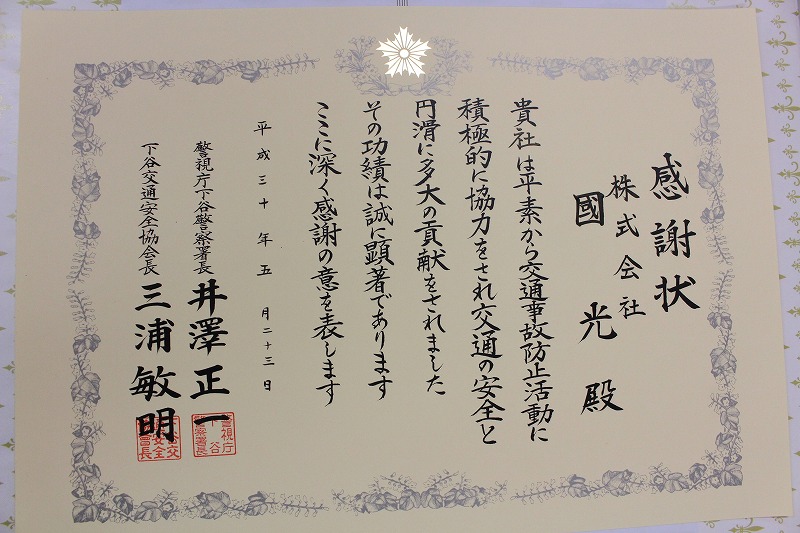 感謝状
株式会社
國光殿
貴社は平素から交通事故防止活動に
積極的に協力をされ交通の安全と
円滑に多大の貢献をされました
その功績は誠に顕著であります
ここに深く感謝の意を表します
平成三十年五月二十三日
警視庁下谷警察署長 井澤正一
下谷交通安全協会長 三浦敏明
警視庁
下谷
警察署長